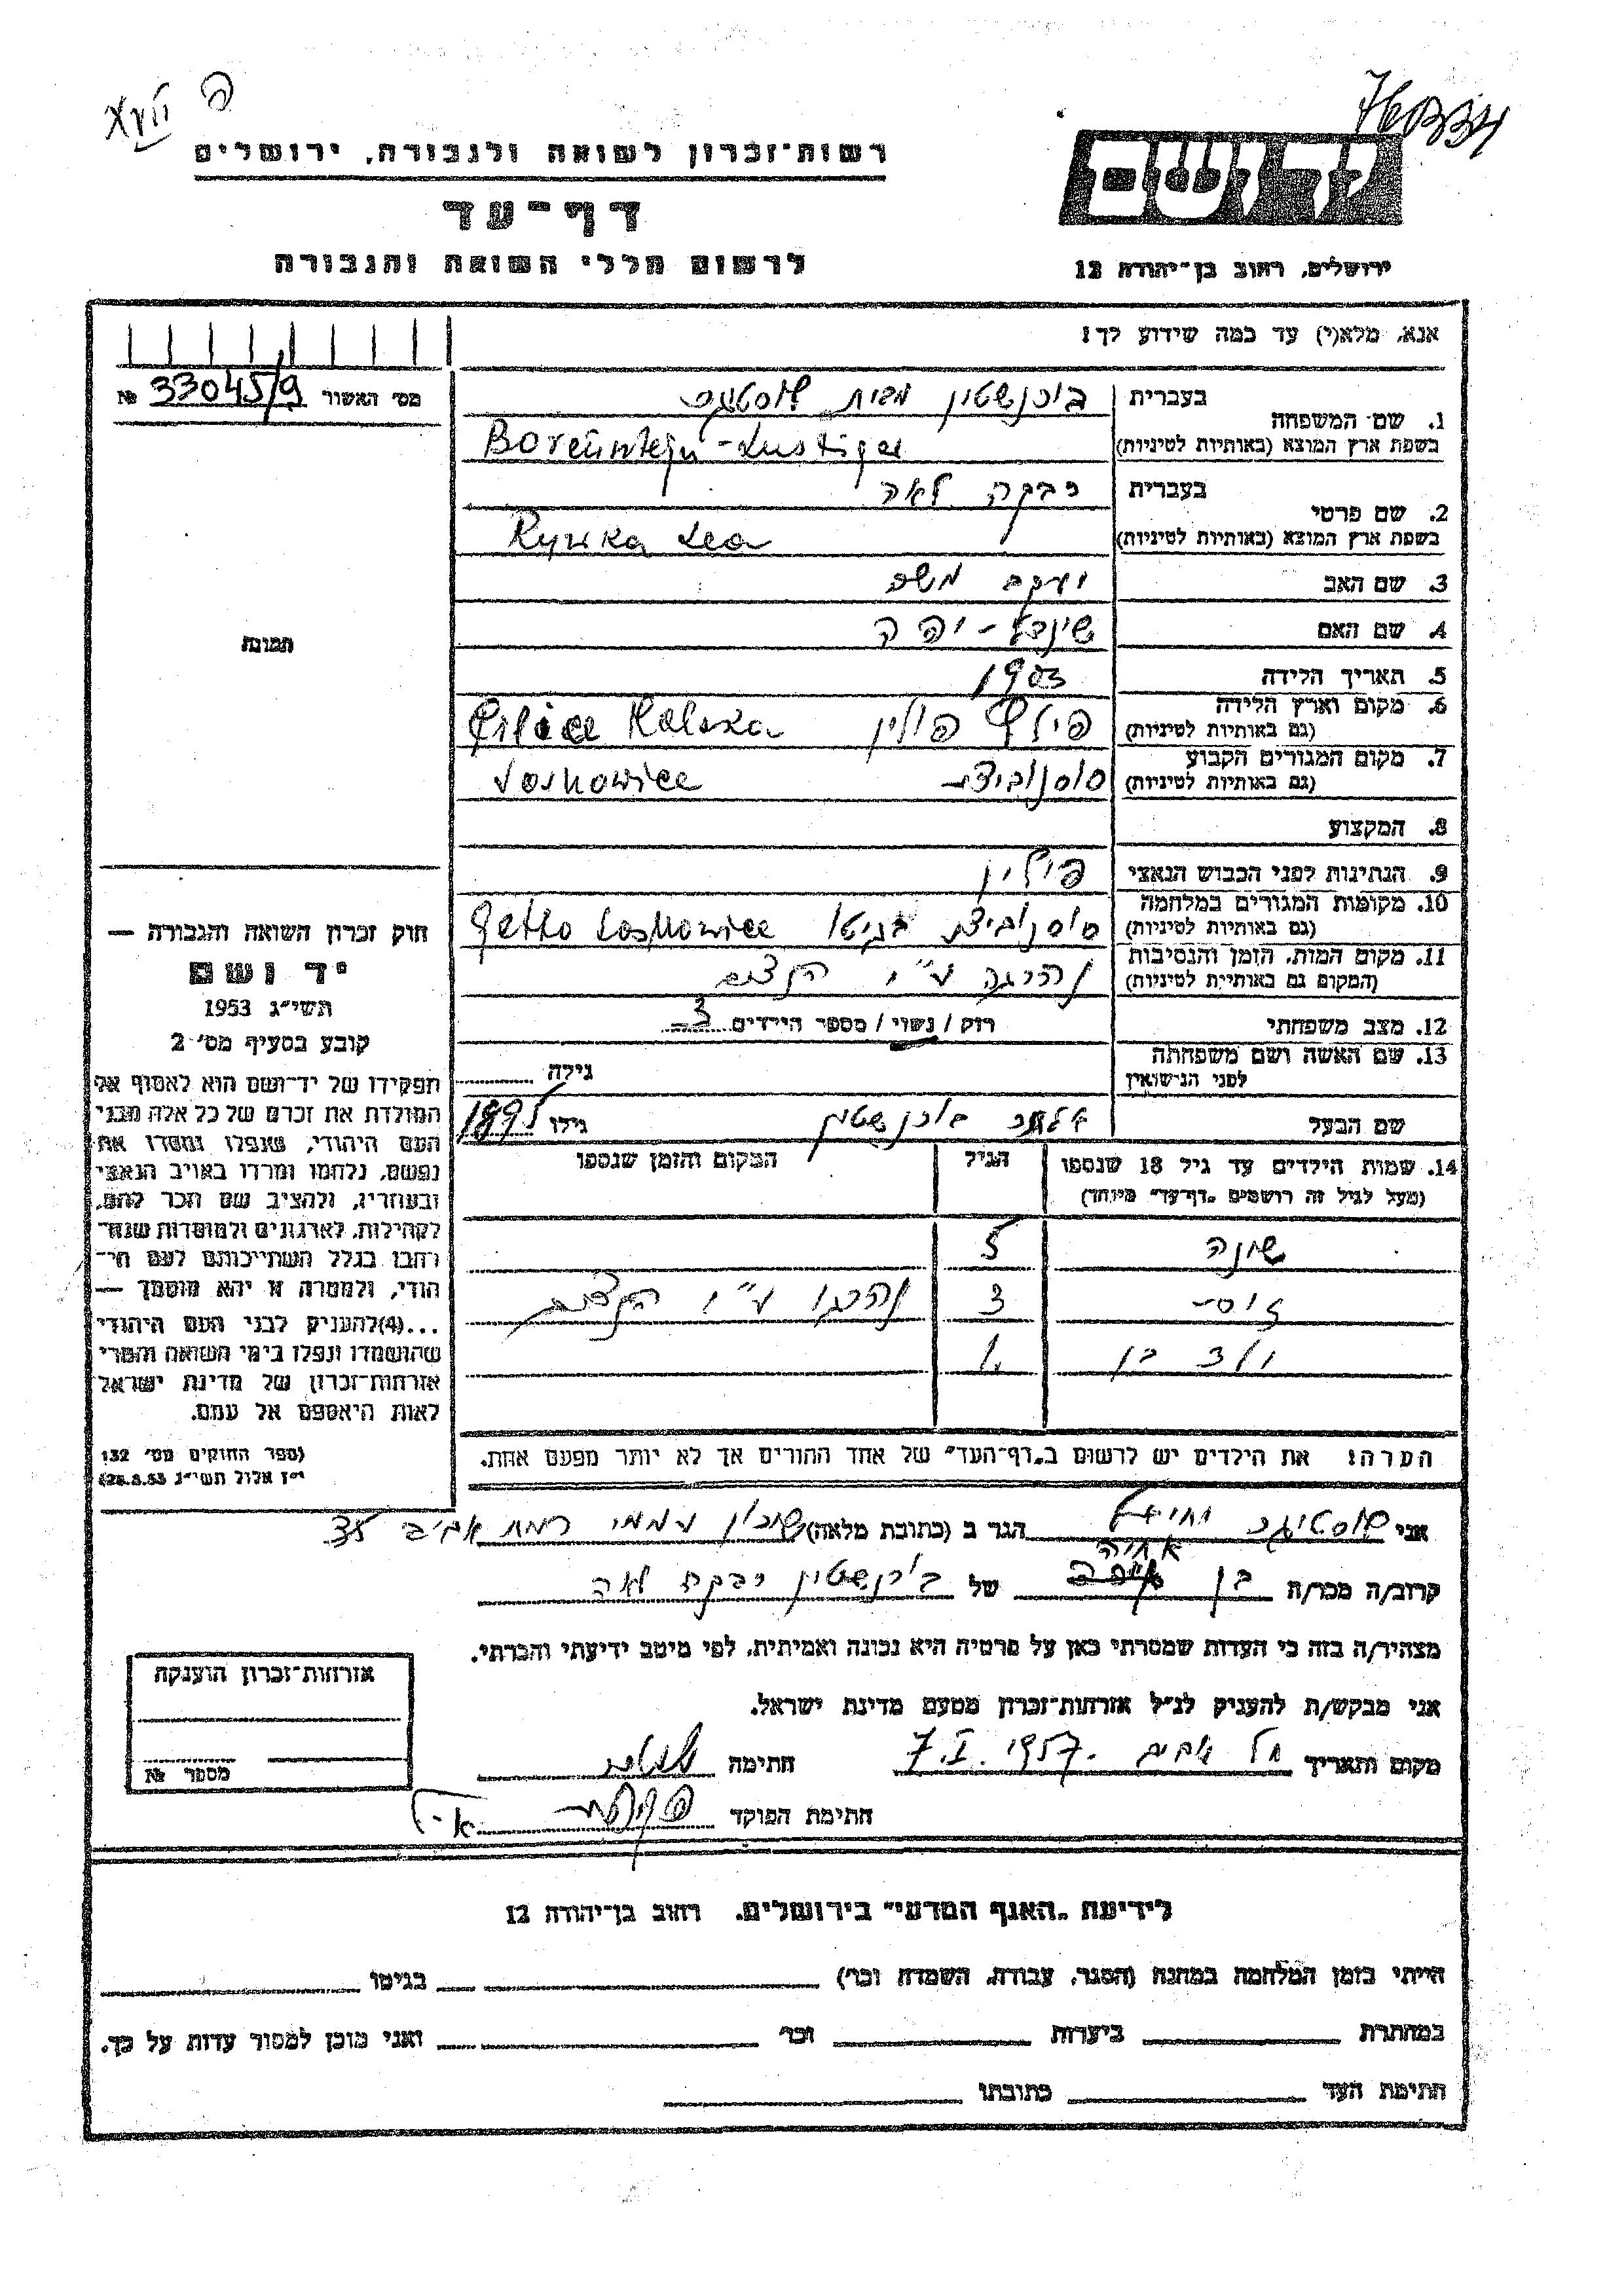 רשות־זכרון לשואה ולגבורה, ירושלים
דף־עד
לרשום חללי השואה והגבורה
ירושלים, רחוב בן־יהודה 12
אנא, מלא(י) עד כמה שידוע לך!
מס׳ האשור 33045/9 №
1. שם המשפחה
בעברית בורנשטין מבית לוסטיגר
בשפת ארץ המוצא (באותיות לטיניות) Borensztejn - Lustiger
2. שם פרטי
בעברית רבקה לאה
בשפת ארץ המוצא (באותיות לטיניות) Rywka Lea
3. שם האב יעקב משה
4. שם האם שינדל - יפה
5. תאריך הלידה 1903
6. מקום וארץ הלידה פילץ פולין
(גם באותיות לטיניות)
7. מקום המגורים הקבוע סוסנוביץ Sosnowiec
(גם באותיות לטיניות)
8. המקצוע
9. הנתינות לפני הכבוש הנאצי פולין
10. מקומות המגורים במלחמה סוסנוביץ בגיטו Getto Sosnowiec
(גם באותיות לטיניות)
11. מקום המות, הזמן והנסיבות נהרגה ע״י הנצים
(המקום גם באותיית לטיניות)
12. מצב משפחתי רוק / נשוי / מספר הילדים 3
13. שם האשה ושם משפחתה גילה
לפני הנישואין
שם הבעל בורנשטין גילו 1895
14. שמות הילדים עד גיל 18 שנספו הגיל המקום והזמן שנספו
(מעל לגיל זה רושמים „דף־עד״ מיוחד)
שונה 5
3 נהרגו ע״י הנצים
ולד בן 1
הערה: את הילדים יש לרשום ב„דף־העד״ של אחד ההורים אך לא יותר מפעם אחת.
תמונה
חוק זכרון השואה והגבורה —
יד ושם
תשי״ג 1953
קובע בסעיף מס׳ 2
תפקידו של יד־ושם הוא לאסוף אל
המולדת את זכרם של כל אלה מבני
העם היהודי, שנפלו ומסרו את
נפשם, נלחמו ומרדו באויב הנאצי
ובעוזריו, ולהציב שם וזכר להם,
לקהילות, לארגונים ולמוסדות שנח־
רבו בגלל השתייכותם לעם הי־
הודי, ולמטרה זו יהא מוסמך —
...(4)להעניק לבני העם היהודי
שהושמדו ונפלו בימי השואה והמרי
אזרחות־זכרון של מדינת ישראל
לאות היאספם אל עמם.
(ספר החוקים מס׳ 132
י״ז אלול תשי״ג 28.8.53)
אני לוסטיגר הגר ב (כתובת מלאה) שיכון עממי רמת אביב
אחיה
קרוב/ה מכר/ה בן של בורנשטין רבקה לאה
מצהיר/ה בזה כי העדות שמסרתי כאן על פרטיה היא נכונה ואמיתית, לפי מיטב ידיעתי והכרתי.
אני מבקש/ת להעניק לנ״ל אזרחות־זכרון מטעם מדינת ישראל.
מקום ותאריך תל אביב 7.I.1957 חתימה
חתימת הפוקד
אזרחות־זכרון הוענקה
מספר №
לידיעת „האגף המדעי״ בירושלים, רחוב בן־יהודה 12
הייתי בזמן המלחמה במחנה (הסגר, עבודה, השמדה וכו׳) בגיטו
במחתרת ביערות וכו׳ ואני מוכן למסור עדות על כך.
חתימת העד כתובתו